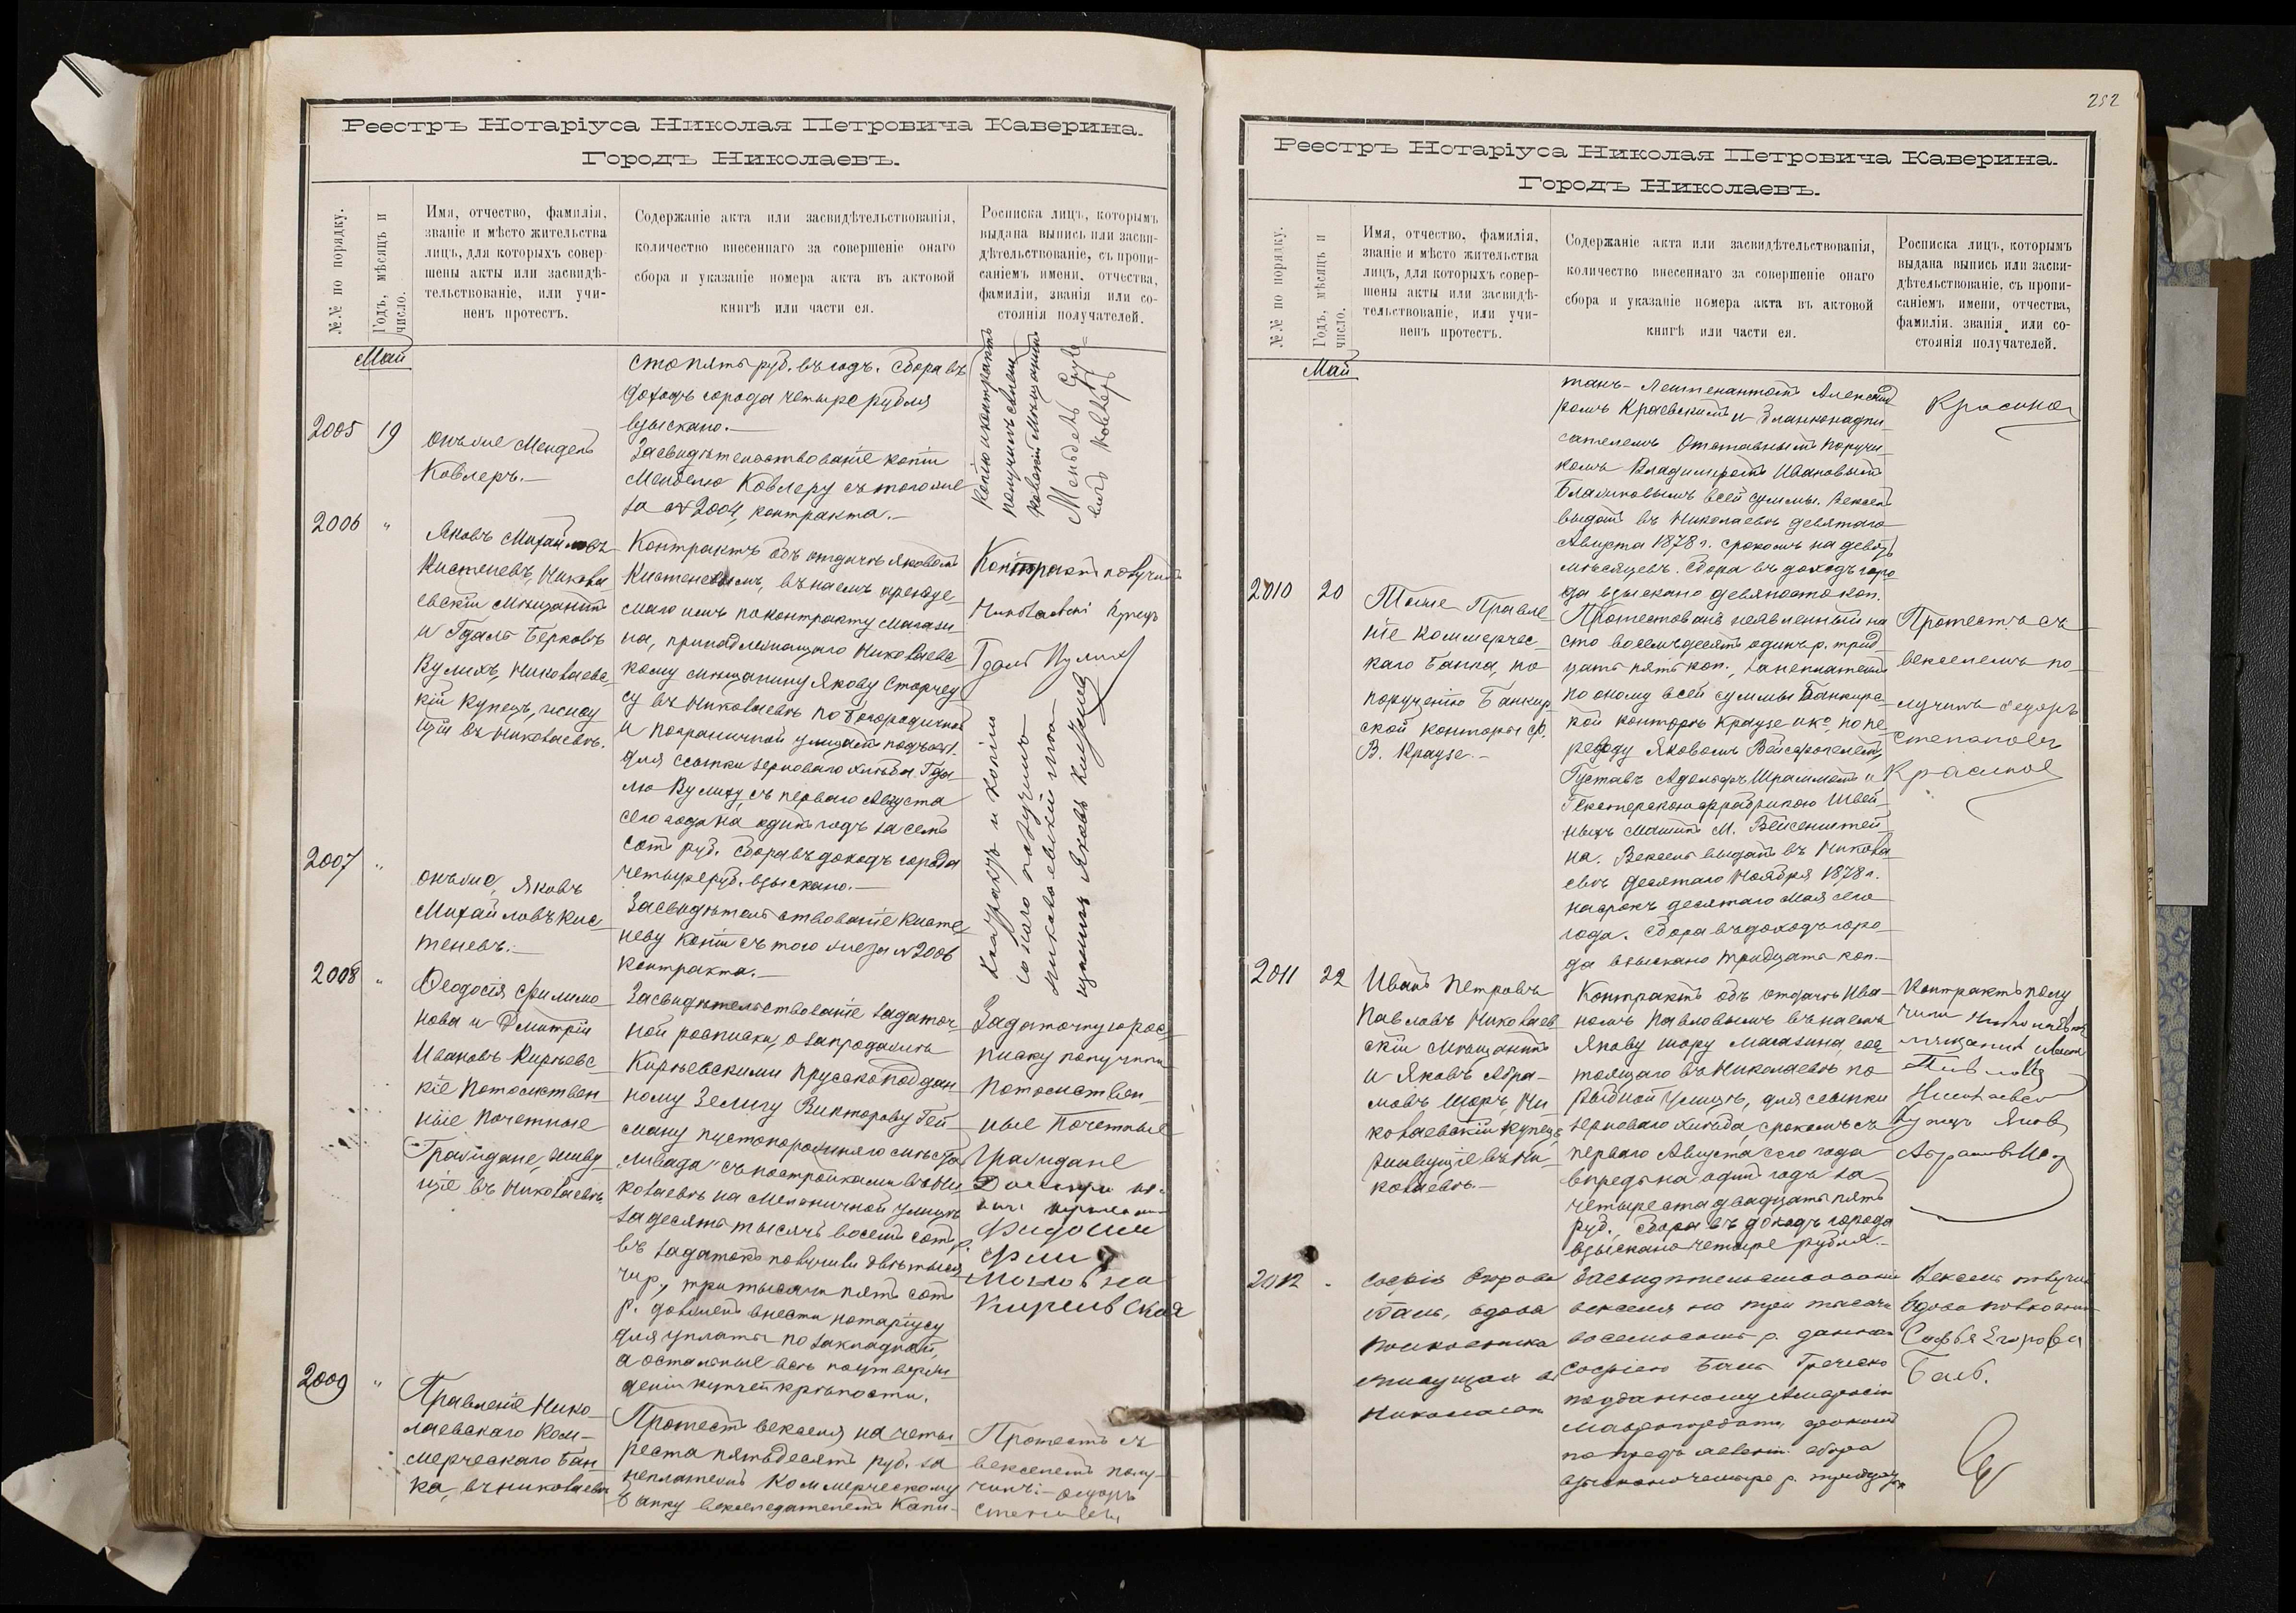 Реестръ Нотаріуса Николая Петровича Каверина.
Городъ Николаевъ.
№№ по порядку.
Годъ, мѣсяцъ и
число.
Имя, отчество, фамилія,
званіе и мѣсто жительства
лицъ, для которыхъ совер-
шены акты или засвидѣ-
тельствованіе, или учи-
ненъ протестъ.
Содержаніе акта или засвидѣтельствованія,
количество внесеннаго за совершеніе онаго
сбора и указаніе номера акта въ актовой
книгѣ или части ея.
Росписка лицъ, которымъ
выдана выпись или засви-
дѣтельствованіе, съ пропи-
саніемъ имени, отчества,
фамиліи, званія или со-
стоянія получателей.
Май
сто пять руб. въ годъ. Сбора въ
доходъ города четыре рубля
взыскано.—
2005
19
онъ же Мендель
Ковлеръ.—
Засвидѣтельствованіе копіи
Менделю Ковлеру съ того же
за № 2004, контракта.—
Копію и контрактъ
Мендель
2006
"
Яковъ Михайловъ
Кистеневъ, Никола
евскій Мѣщанинъ
и Гдаль Берковъ
Кулихъ, Николаевс
кій Купецъ, живу
щіи въ Николаевѣ.
Контрактъ объ отдачѣ Яковомъ
Кистеневымъ, въ наемъ арендуе-
маго имъ по контракту магази
на, принадлежащаго Николаевс-
кому мѣщанину Якову Сторчеу
су въ Николаевѣ по Богородичной
и Пограничной улицамъ подъ №1.
для ссыпки зерноваго хлѣба Гда
лю Кулиху, съ перваго Августа
сего года на одинъ годъ за семь
сотъ руб. сбора въ доходъ города
четыре руб. взыскано.—
Контрактъ получилъ
Николаевскі Купецъ
Гдаль Кулихъ
2007
"
онъ же, Яковъ
Михайловъ Кис
теневъ.—
Засвидѣтельствованіе Кисте
неву копіи съ того же за №2006
контракта.—
Контрактъ и копію
съ него получилъ
николаевскій мѣ
щанинъ Яковъ Кистенев
2008
"
Ѳеодосія Филимо
нова и Дмитрій
Ивановъ Киріевс-
кіе Потомствен-
ные Почетные
Граждане, живу
щіе въ Николаевѣ
Засвидѣтельствованіе задаточ-
ной росписки, о запродажѣ
Киріевскими Прусско подан
ному Зелигу Викторову Гей-
ману пустопорожняго мѣста
"ливада" съ постройками въ Ни
колаевѣ на Мѣщничной улицѣ
за десять тысячъ восемь сотъ р.
въ задатокъ получили двѣ тыся
чи р., три тысячи пять сотъ
р. долженъ внести нотаріусу
для уплаты по закладной,
а остальные всѣ по утверж
деніи купчей крѣпости.
Задаточную рос-
писку получили
Потомствен-
ные Почетные
Граждане
Киреивская
2009
"
Правленіе Нико-
лаевскаго Ком-
мерческаго Бан-
ка, въ Николаевѣ
Протестъ векселя на четы
реста пятьдесятъ руб. за
неплатежъ Коммерческому
Банку векселедателемъ Капи-
Протестъ съ
векселемъ полу-
чилъ:— Ѳедоръ
Степановъ
252
Реестръ Нотаріуса Николая Петровича Каверина.
Городъ Николаевъ.
№№ по порядку.
Годъ, мѣсяцъ и
число.
Имя, отчество, фамилія,
званіе и мѣсто жительства
лицъ, для которыхъ совер-
шены акты или засвидѣ-
тельствованіе, или учи-
ненъ протестъ.
Содержаніе акта или засвидѣтельствованія,
количество внесеннаго за совершеніе онаго
сбора и указаніе номера акта въ актовой
книгѣ или части ея.
Росписка лицъ, которымъ
выдана выпись или засви-
дѣтельствованіе, съ пропи-
саніемъ имени, отчества,
фамиліи, званія или со-
стоянія получателей.
Май
танъ-Лейтенантомъ Александ
ромъ Краевскимъ и бланконадпи-
сателемъ Отставнымъ Поручи-
комъ Владимиромъ Ивановымъ
всей суммы. Вексель
выданъ въ Николаевѣ девятаго
Августа 1878 г. срокомъ на девять
мѣсяцевъ. Сбора въ доходъ горо
да взыскано девяносто коп.
2010
20
Тоже Правле-
ніе Коммерчес-
каго Банка, по
порученію Банкир
ской конторы Ф.
В. Краузе.—
Протестованъ неявленный на
сто восемьдесятъ одинъ р. трид
цать пять коп., за неплатежъ
по оному всей суммы Банкирс-
кой конторѣ Краузе и Ко, по пе
реводу Яковомъ
Густавъ Адольфъ Шраммомъ и
Швей-
ныхъ Машинъ М. Вейсенштей-
на. Вексель выданъ въ Никола
евѣ десятаго Ноября 1878 г.
на срокъ десятаго Мая сего
года. Сбора въ доходъ горо-
да взыскано тридцать коп.—
Протестъ съ
векселемъ по-
лучилъ Ѳедоръ
Степановъ
2011
22
Иванъ Петровъ
Павловъ Николаев
скій Мѣщанинъ
и Яковъ Абра-
мовъ Шоръ, Ни-
колаевскій Купецъ,
живущіе въ Ни-
колаевѣ.—
Контрактъ объ отдачѣ Ива-
номъ Павловымъ въ наемъ
Якову Шору магазина, сос-
тоящаго въ Николаевѣ по
Рыбной улицѣ, для ссыпки
зерноваго хлѣба, срокомъ съ
перваго Августа сего года
впредь на одинъ годъ за
четыреста двадцать пять
руб., сбора въ доходъ города
взыскано четыре рубля.—
Контрактъ полу
чили
мѣщанинъ Иванъ
2012
Софія Егорова
Баль, вдова
Полковника
живущая въ
Николаевѣ
Засвидѣтельствованіе
векселя на три тысячи
восемьсотъ р. даннаго
Софіею Баль Греческо
подданному Амвросію
Маврогордато, срокомъ
по предъявленіи сбора
взыскано четыре р.
Вексель получила
вдова полковника
Софья Егоровна
Баль.